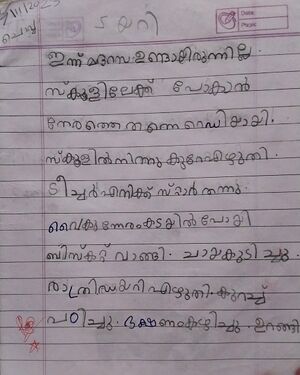 7/11/2023
ചൊവ്വ
ഡയറി
Date:
Page:
ഇന്ന് മദ്രസ ഉണ്ടായിരുന്നില്ല.
സ്കൂളിലേക്ക് പോകാൻ
നേരത്തെ തന്നെ റെഡിയായി.
സ്കൂളിൽനിന്നും കുറേഎഴുതി.
ടീച്ചർ എനിക്ക് സ്റ്റാർ തന്നു.
വൈകുന്നേരം കടയിൽ പോയി
ബിസ്കറ്റ് വാങ്ങി. ചായകുടിച്ചു.
രാത്രി ഡയറി എഴുതി. കുറച്ച്
പഠിച്ചു. ഭക്ഷണംകഴിച്ചു. ഉറങ്ങി